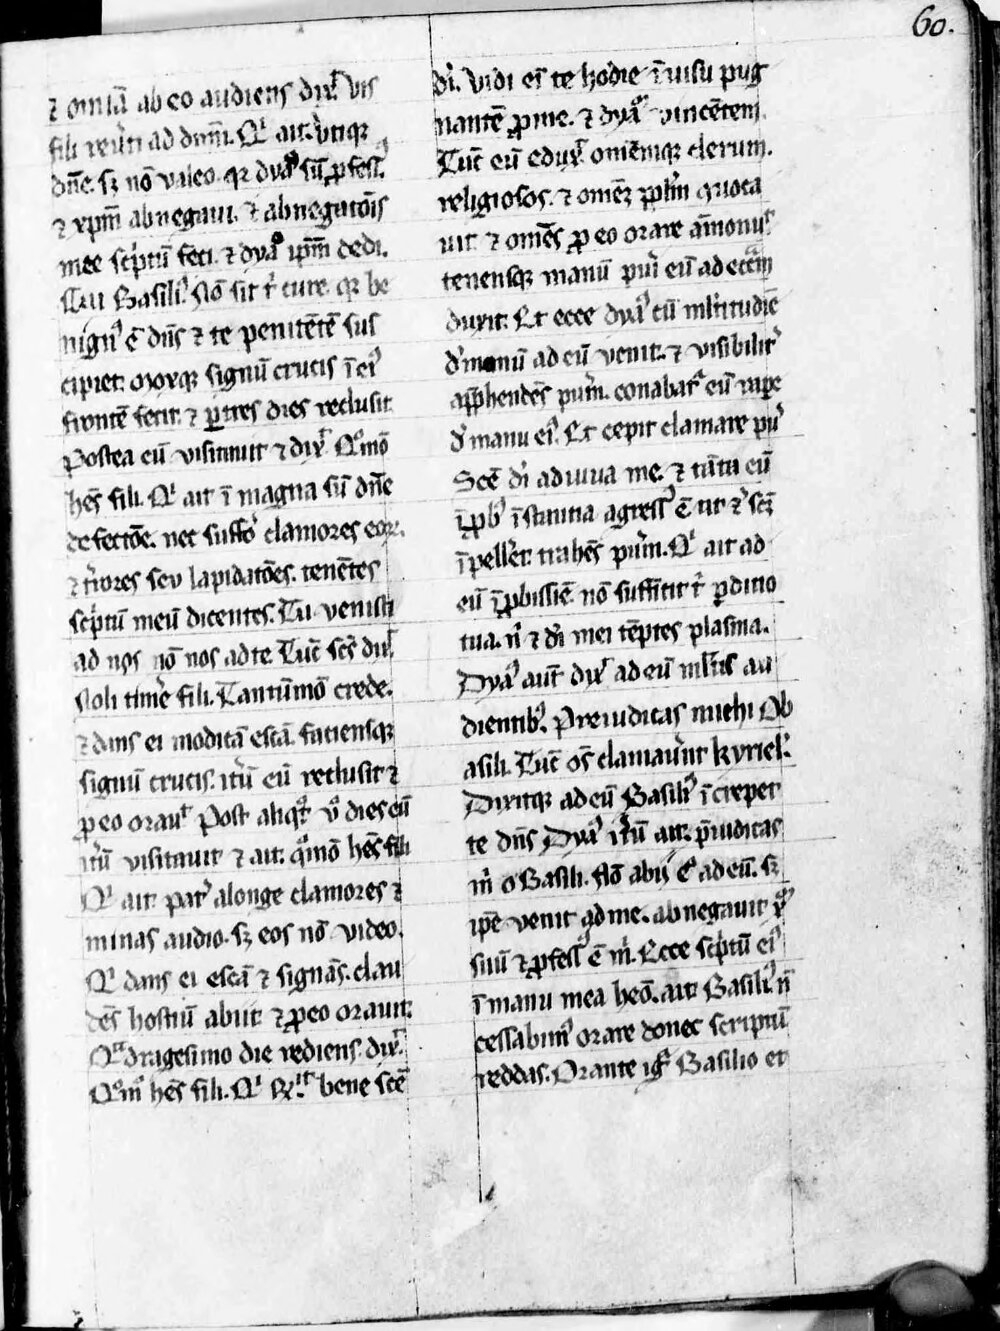 60.
⁊ om̄ia ab eo audiens dix̄ vis
fili reuti ad dnm̄. Qͥ ait. vtiqꝫ
dn̄e. sꝫ nō valeo. qꝛ dyaᵒ sū ꝓfess9
⁊ xpm̄ abnegaui. ⁊ abnegatōis
mee scptū feci. ⁊ dyaᵒ ipm̄ dedi.
Cui Basiliꝰ. Nō sit tͥ cure. qꝛ be
nignꝰ ē dn̄s ⁊ te penitētē sus
cipiet. moxqꝫ signū crucis ī eiꝰ
frontē fecit. ⁊ ꝑ tres dies reclusit
Postea eū visitauit ⁊ dix̄. Qͦmō
hēs fili. Qͥ ait ī magna sū dn̄e
defectōe. nec suffo clamores eoꝝ.
⁊ tiores seu lapidatōes. tenētes
scptū meū dicentes. Tu venisti
ad nos nō nos ad te. Tūc scs̄ dix̄
Noli timē fili. Tantūmō crede.
⁊ dans ei modicā escā. faciensqꝫ
signū crucis. itū eū reclusit ⁊
ꝓ eo orauᵗ Post aliqͦt vͦ dies eū
itū visitauit ⁊ ait. qͦmō hēs fili
Qͥ ait pat alonge clamores ⁊
minas audio. sꝫ eos nō video.
Qͥ dans ei escā ⁊ signās. clau
dēs hostiū abiit ⁊ ꝓ eo orauit.
Qᵃdragesimo die rediens. dix̄.
Qͦmͦ hēs fili. Qͥ Rx.ᶦᵗ bene scē
dī. Vidi eī te hodie ī uisu pug
nantē ꝓ me. ⁊ dyaᵐ vincētem.
Tūc eū edux̄ omēmqꝫ clerum.
religiosos. ⁊ omēꝫ pplm̄ quoca
uit ⁊ omēs ꝓ eo orare āmonuᵗ
tenensqꝫ manū pui eū ad ecciam
duxit. Et ecce dyaꝰ cū mltitudiē
dmonū ad eū venit. ⁊ visibilit
apphendēs puꝝ. conabatᷣ eū rape
d manu eiꝰ. Et cepit clamare pu
Scē dī adiuua me. ⁊ tāta eū
īꝓbꝰ īstantia agressꝰ ē ut ⁊ scꝫ
īpelleret trahēs puꝝ. Qͥ ait ad
eū īꝓbissiē. nō sufficit tͥ ꝑditio
tua. nͥ ⁊ dī mei tēptes plasma.
Dyaꝰ aut̄ dix̄ ad eū mltis au
dientibꝰ. Preiudicas michi O b
asili. Tūc os̄ clamaūt kyriel.
Dixitqꝫ ad eū Basiliꝰ īcrepet
te dn̄s Dyaꝰ itū ait. p̄iudicas
mͥ o Basili. Nō abij eͦ ad eū. sꝫ
ipē venit ad me. abnegauit xᵐ
suū ⁊ ꝓfessꝰ ē mͥ. Ecce scptū eiꝰ
ī manu mea heō. ait Basiliꝰ nō
cessabimꝰ orare donec scriptū
reddas. Orante igͬ Basilio et